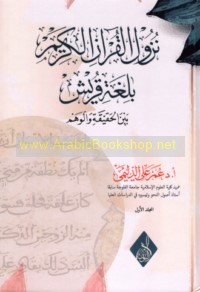 نزول القرآن الكريم
بلغة قريش
بين الحقيقة والوهم
www.ArabicBookshop.net
أ.د. عمر علي الدليمي
عميد كلية العلوم الإسلامية جامعة الفلوجة سابقا
أستاذ أصول النحو وتيسيره في الدراسات العليا
المجلد الأول